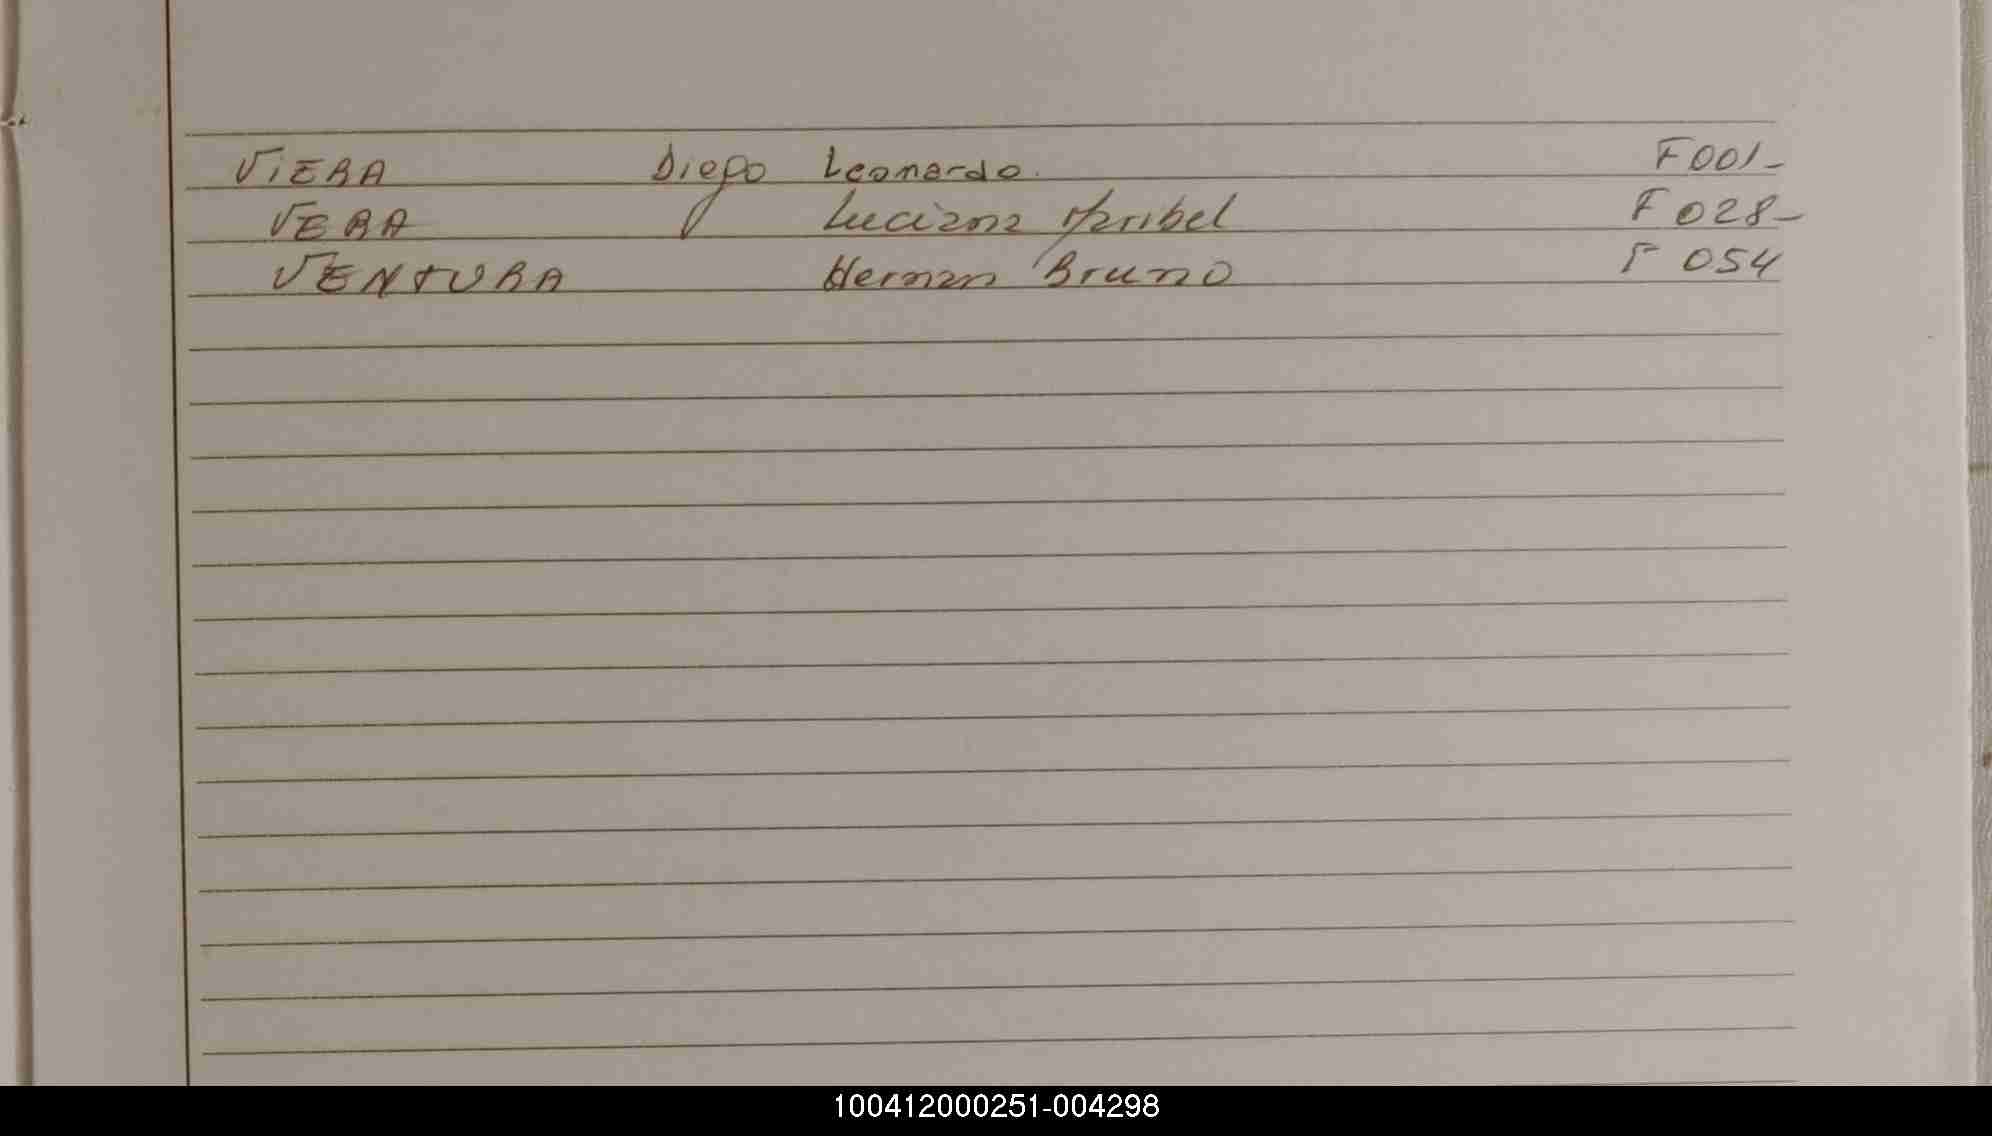 VIERA Diego Leonardo. F001-
VERA Luciana Maribel F 028-
VENTURA Hernan Bruno F 054
100412000251-004298